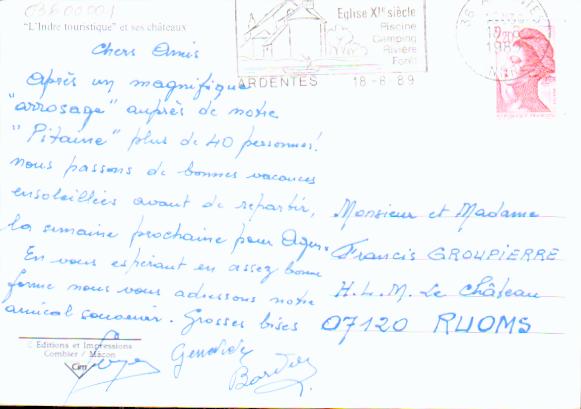 03600001
"L'Indre touristique" et ses châteaux
Eglise XIe siècle
Piscine
Camping
Rivière
Forêt
ARDENTES 18-8 89
Chers Amis
Après un magnifique
"arrosage" auprès de notre
"Pitaine" plus de 40 personnes!
nous passons de bonnes vacances
ensoleillées avant de repartir,
la semaine prochaine pour Agen.
En vous espérant en assez bonne
forme nous vous adressons notre
amical souvenir. Grosses bises
Monsieur et Madame
Francis GROUPIERRE
H.L.M. Le Château
07120 RUOMS
Editions et Impressions
Combier / Mâcon
Cim